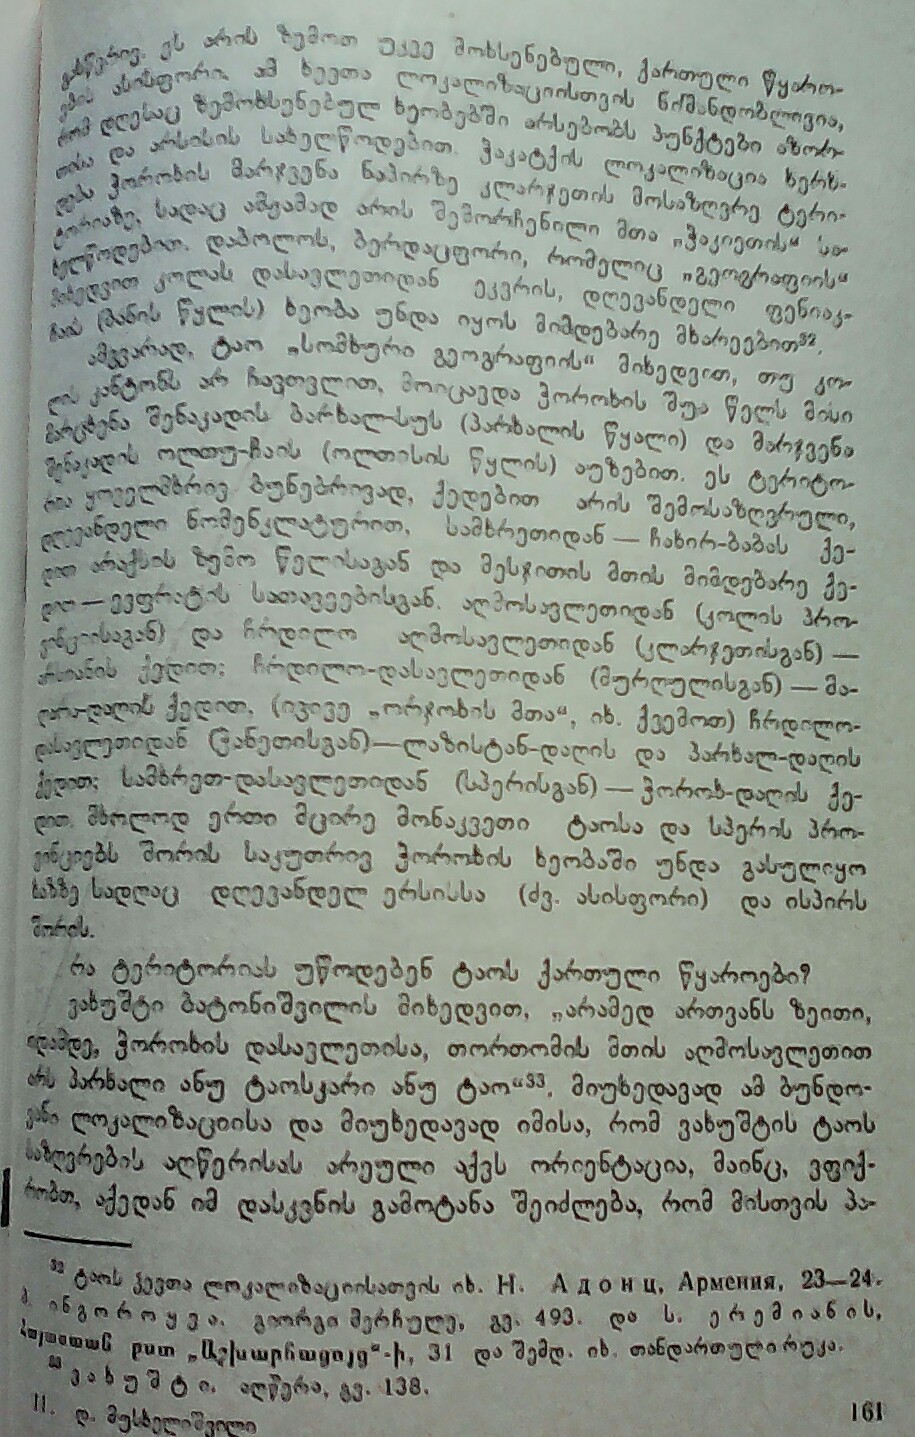 ფსწერივ. ეს არის ზემოთ უკვე მოხსენებული, ქართული წყარო-
ების ასისფორი. ამ ხევთა ლოკალიზაციისთვის ნიშანდობლივია,
რომ დღესაც ზემოხსენებულ ხეობებში არსებობს პუნქტები აზორ-
თისა და არსისის სახელწოდებით. ჭაკატქის ლოკალიზაცია ხერხ-
დება ჭოროხის მარჯვენა ნაპირზე კლარჯეთის მოსაზღვრე ტერი-
ტორიაზე, სადაც ამჟამად არის შემორჩენილი მთა „ჭაკიეთის“ სა-
ხელწოდებით. დაბოლოს, ბერდაცფორი, რომელიც „გეოგრაფიის“
მიხედვით კოლას დასავლეთიდან ეკვრის, დღევანდელი ფენიაკ-
ჩაის (ბანის წყლის) ხეობა უნდა იყოს მიმდებარე მხარეებით³².
ამგვარად, ტაო „სომხური გეოგრაფიის“ მიხედვით, თუ კო-
ლის კანტონს არ ჩავთვლით, მოიცავდა ჭოროხის შუა წელს მისი
მარცხენა შენაკადის ბარხალ-სუს (პარხალის წყალი) და მარჯვენა
შენაკადის ოლთუ-ჩაის (ოლთისის წყლის) აუზებით. ეს ტერიტო-
რია ყოველმხრივ ბუნებრივად, ქედებით არის შემოსაზღვრული,
დღევანდელი ნომენკლატურით, სამხრეთიდან — ჩახირ-ბაბას ქე-
დით არაქსის ზემო წელისაგან და მესჯითის მთის მიმდებარე ქე-
დით — ევფრატის სათავეებისგან. აღმოსავლეთიდან (კოლის პრო-
ვინციისაგან) და ჩრდილო აღმოსავლეთიდან (კლარჯეთისგან) —
არსიანის ქედით; ჩრდილო-დასავლეთიდან (მურღულისგან) — მა-
ღარა-დაღის ქედით. (ივივე „ორჯოხის მთა“, იხ. ქვემოთ) ჩრდილო-
დასავლეთიდან (ჭანეთისგან)—ლაზისტან-დაღის და პარხალ-დაღის
ქედით; სამხრეთ-დასავლეთიდან (სპერისგან) — ჭოროხ-დაღის ქე-
დით. მხოლოდ ერთი მცირე მონაკვეთი ტაოსა და სპერის პრო-
ვინციებს შორის საკუთრივ ჭოროხის ხეობაში უნდა გასულიყო
ხაზზე სადღაც დღევანდელ ერსისსა (ძვ. ასისფორი) და ისპირს
შორის.
რა ტერიტორიას უწოდებენ ტაოს ქართული წყაროები?
ვახუშტი ბატონიშვილის მიხედვით, „არამედ ართვანს ზეითი,
იდამდე, ჭოროხის დასავლეთისა, თორთომის მთის აღმოსავლეთით
არს პარხალი ანუ ტაოსკარი ანუ ტაო“³³. მიუხედავად ამ ბუნდო-
ვანი ლოკალიზაციისა და მიუხედავად იმისა, რომ ვახუშტის ტაოს
საზღვრების აღწერისას არეული აქვს ორიენტაცია, მაინც, ვფიქ-
რობთ, აქედან იმ დასკვნის გამოტანა შეიძლება, რომ მისთვის პა-
³² ტაოს ჴევთა ლოკალიზაციისათვის იხ. Н. Адонц, Армения, 23—24.
პ. ინგოროყვა. გიორგი მერჩულე, გვ. 493. და ს. ერემიანის,
Հայաստան ըստ „Աշխարհացոյց“-ի, 31 და შემდ. იხ. თანდართული რუკა.
³³ ვახუშტი. აღწერა, გვ. 138.
11. დ. მუსხელიშვილი
161